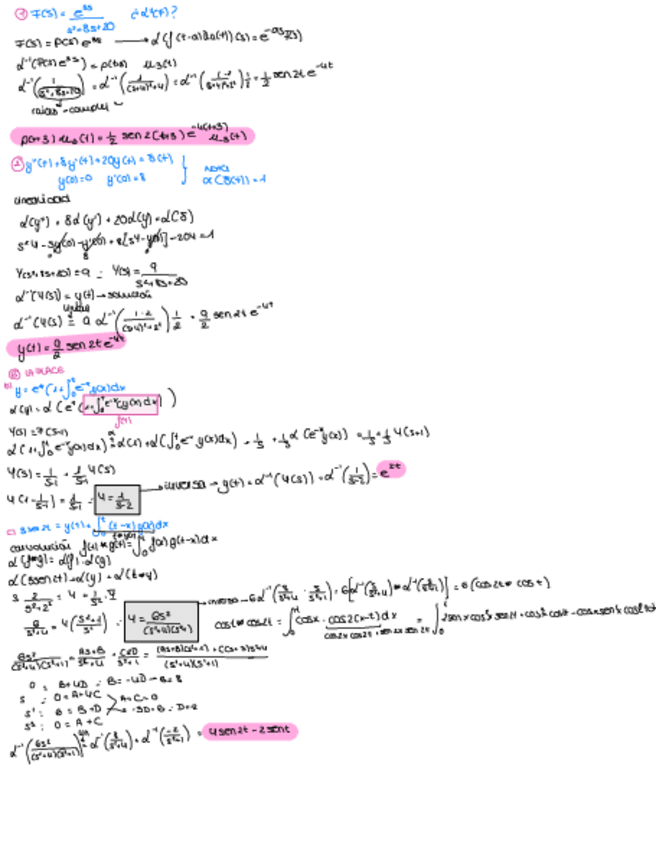 ① F(s) = e^{3s} / s²+8s+20 ¿ α⁻¹(F)?
F(s) = P(s) e^{3s} → α(f(t-a)u_a(t))(s) = e^{-as}F(s)
α⁻¹(P(s)e^{3s}) = p(t+3) u_{-3}(t)
α⁻¹(1/(s²+8s+20)) = α⁻¹(1/((s+4)²+4)) = 1/2 sen 2t e^{-4t}
raíces complej
p(t+3) u_{-3}(t) = 1/2 sen 2(t+3) e^{-4(t+3)} u_{-3}(t)
② y''(t) + 8y'(t) + 20y(t) = δ(t)
y(0)=0 y'(0)=8
NOTA
α(δ(t)) = 1
linealidad
α(y'') + 8α(y') + 20α(y) = α(δ)
s²Y - sy(0) - y'(0) + 8[sY - y(0)] - 20Y = 1
Y(s²+8s+20) = 9 : Y(s) = 9 / s²+8s+20
α⁻¹(Y(s)) = y(t) → solución
α⁻¹(Y(s)) = 9 α⁻¹(1·2 / (s+4)²+2²) 1/2 = 9/2 sen 2t e^{-4t}
y(t) = 9/2 sen 2t e^{-4t}
LAPLACE
b) y = e^t (1+∫₀ᵗ e^{-x} y(x) dx)
α(y) = α(e^t (1+∫₀ᵗ e^{-x} y(x) dx))
f(t)
Y(s) = F(s-1)
α(1+∫₀ᵗ e^{-x} y(x) dx) = α(1) + α(∫₀ᵗ e^{-x} y(x) dx) = 1/s + 1/s α(e^{-x} y(x)) = 1/s + 1/s Y(s+1)
Y(s) = 1/s-1 + 1/s-1 Y(s)
Y(1 - 1/s-1) = 1/s-1 : Y = 1/s-2 → inversa → y(t) = α⁻¹(Y(s)) = α⁻¹(1/s-2) = e^{2t}
c) 3 sen 2t = y(t) + ∫₀ᵗ (t-x) y(x) dx
t*y(t)
convolución f(t)*g(t) = ∫₀ᵗ f(x) g(t-x) dx
α(f*g) = α(f)·α(g)
α(3sen2t) = α(y) + α(t*y)
3 2/s²+2² = Y + 1/s² · Y
6/s²+4 = Y(s²+1/s²) : Y = 6s² / (s²+4)(s²+1) → inversa → 6α⁻¹(s/s²+4 · s/s²+1) = 6[α⁻¹(s/s²+4) * α⁻¹(s/s²+1)] = 6(cos 2t * cos t)
cos t * cos 2t = ∫₀ᵗ cos x · cos 2(x-t) dx
6s² / (s²+4)(s²+1) = As+B / s²+4 + Cs+D / s²+1 = (As+B)(s²+1) + (Cs+D)(s²+4) / (s²+4)(s²+1)
0 = B+4D : B=-4D → B=8
s : 0 = A+4C
s² : 6 = B+D → -3D=6 : D=-2
s³ : 0 = A+C
A=C=0
α⁻¹(6s² / (s²+4)(s²+1)) = α⁻¹(8/s²+4) + α⁻¹(-2/s²+1) = 4 sen 2t - 2 sen t